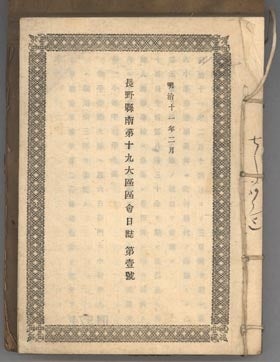 明治十一年二月
長野縣南第十九大區區會日誌 第壹號